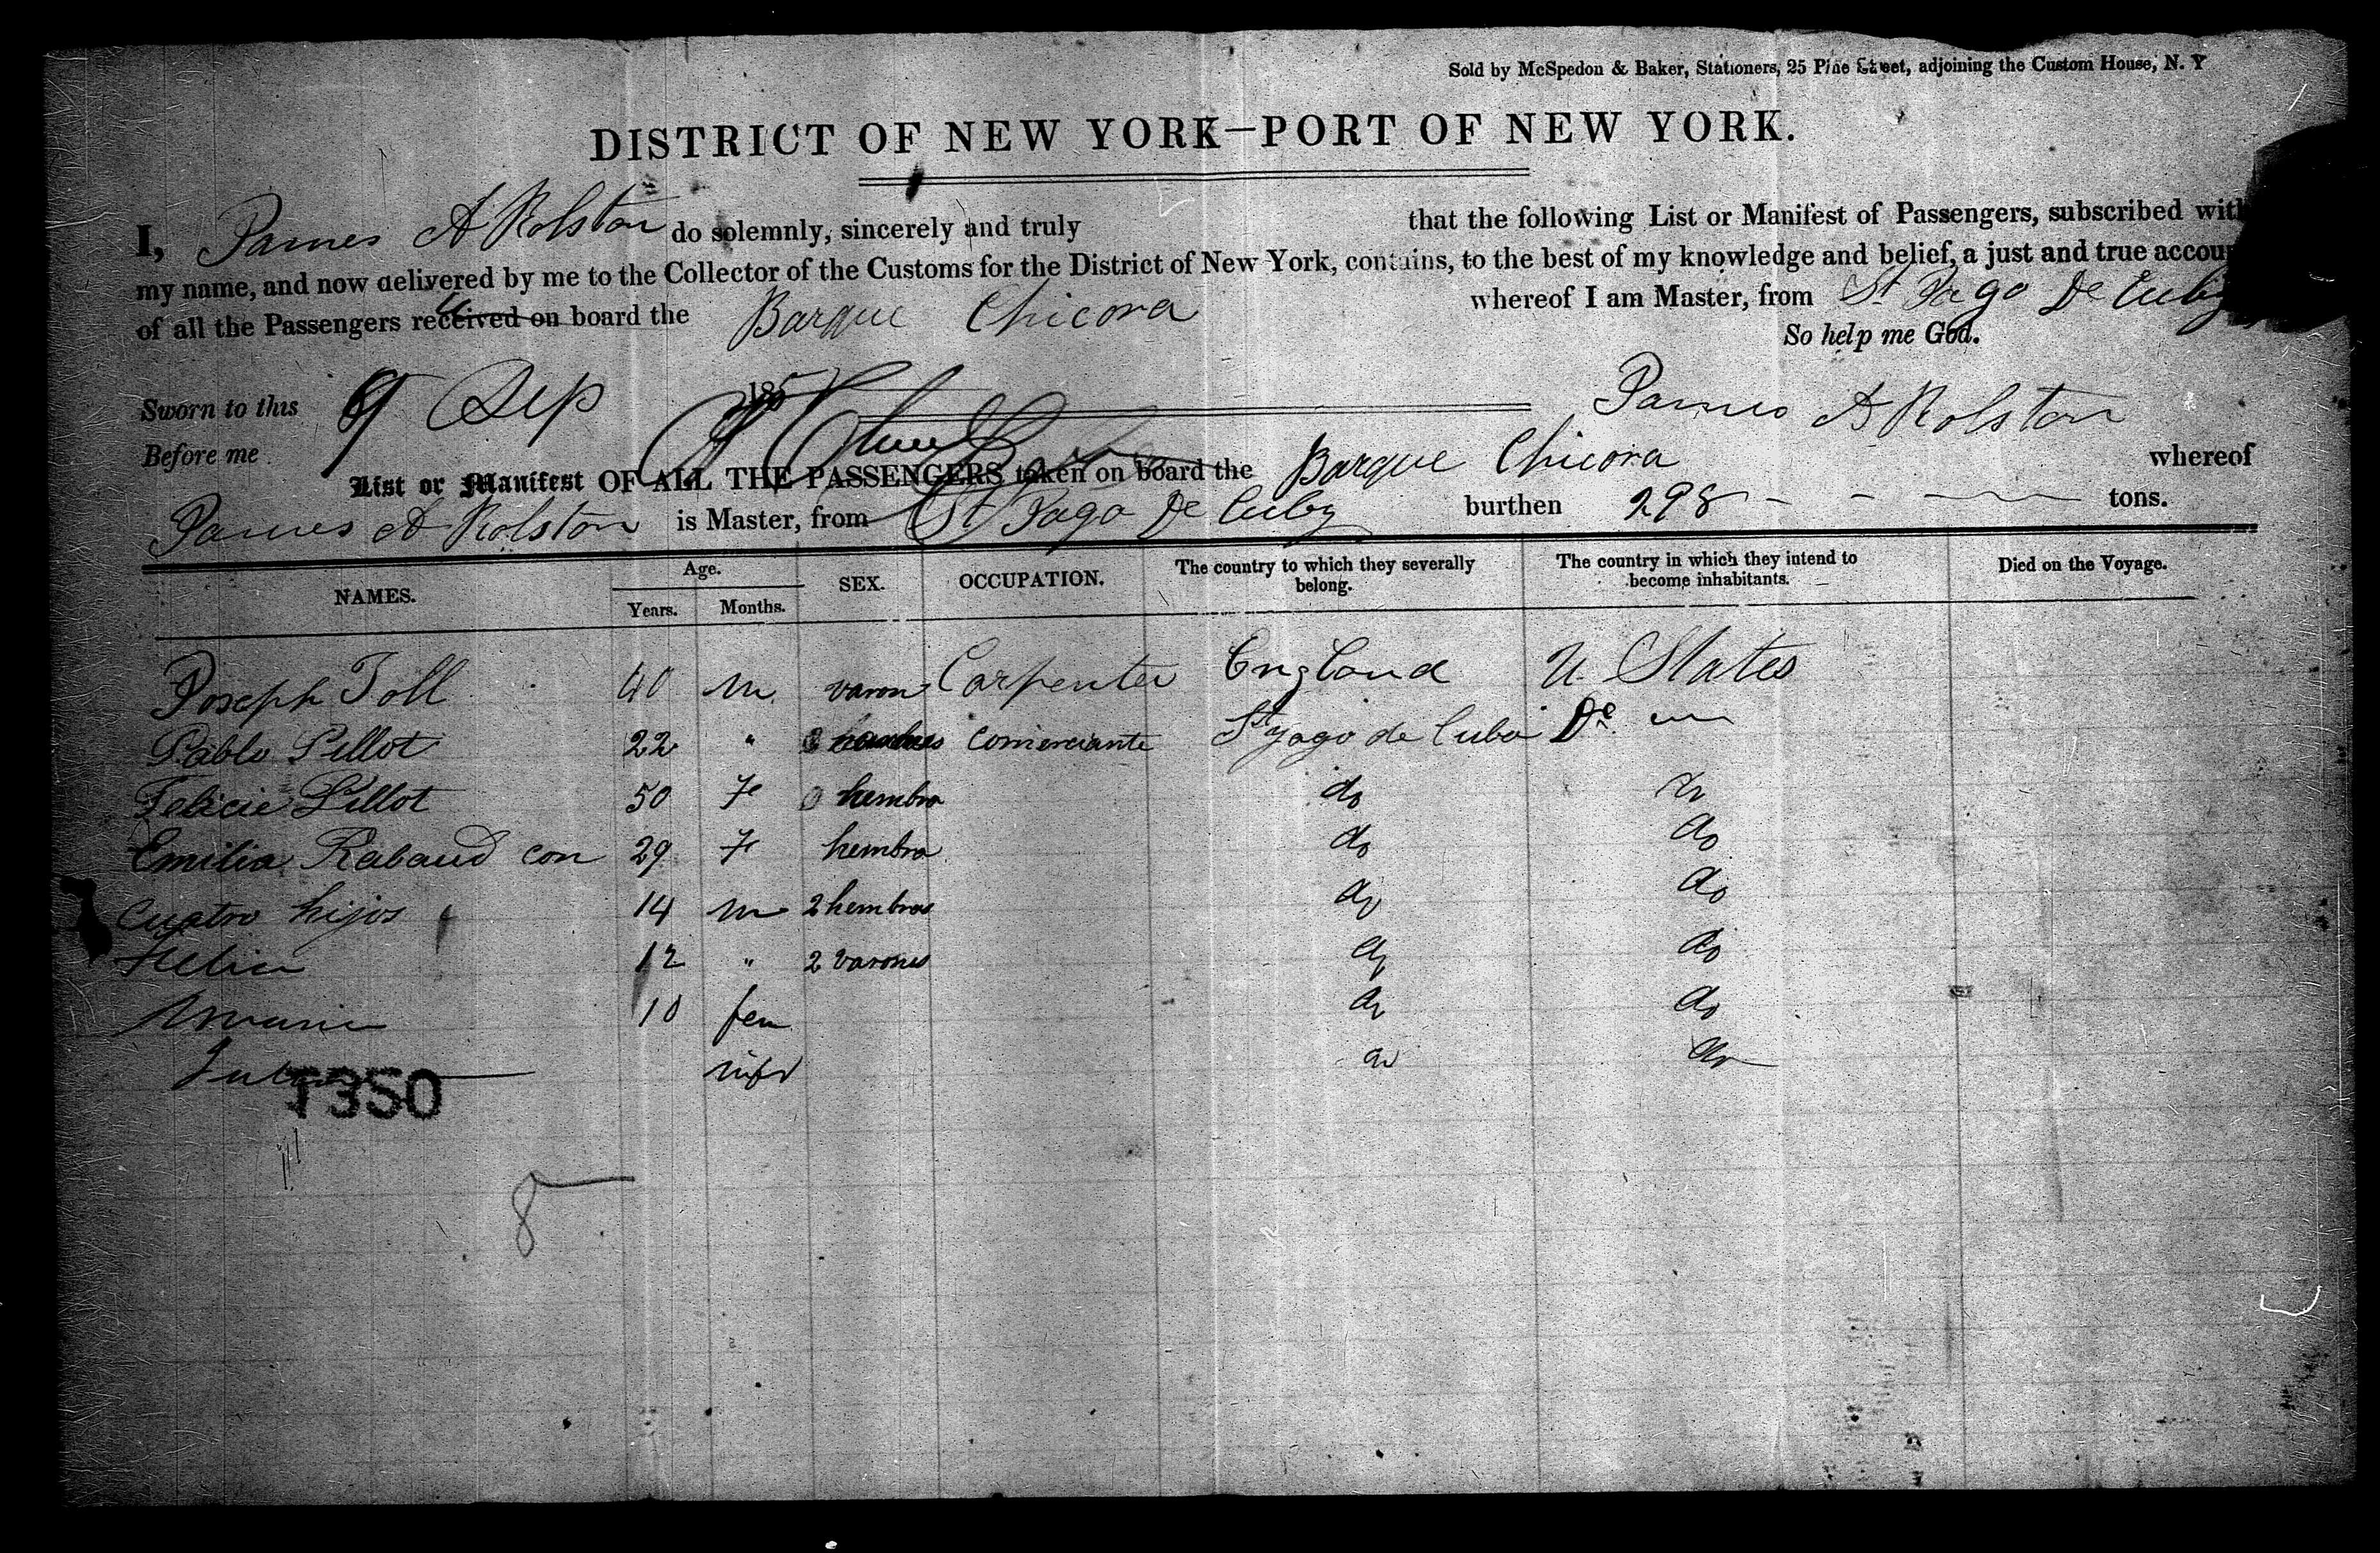 Sold by McSpedon & Baker, Stationers, 25 Pine Street, adjoining the Custom House, N. Y
DISTRICT OF NEW YORK—PORT OF NEW YORK.
I, James A Rolston do solemnly, sincerely and truly that the following List or Manifest of Passengers, subscribed with
my name, and now delivered by me to the Collector of the Customs for the District of New York, contains, to the best of my knowledge and belief, a just and true accoun
of all the Passengers received on board the Barque Chicora whereof I am Master, from St Jago De Cuba
So help me God.
Sworn to this 9 Sep 185
James A Rolston
Before me
List or Manifest OF ALL THE PASSENGERS taken on board the Barque Chicora whereof
James A Rolston is Master, from St Jago De Cuba burthen 298 tons.
NAMES. Age. Years. Months. SEX. OCCUPATION. The country to which they severally belong. The country in which they intend to become inhabitants. Died on the Voyage.
Joseph Toll 40 m varon Carpenter England U. States
Pablo Pillot 22 " Comerciante St Yago de Cuba Do
Felicie Pillot 50 F hembra do do
Emilia Rabaud con 29 F hembra do do
cuatro hijos 14 m 2 hembras do do
12 " 2 varones do do
10 fem do do
do do
1350
8